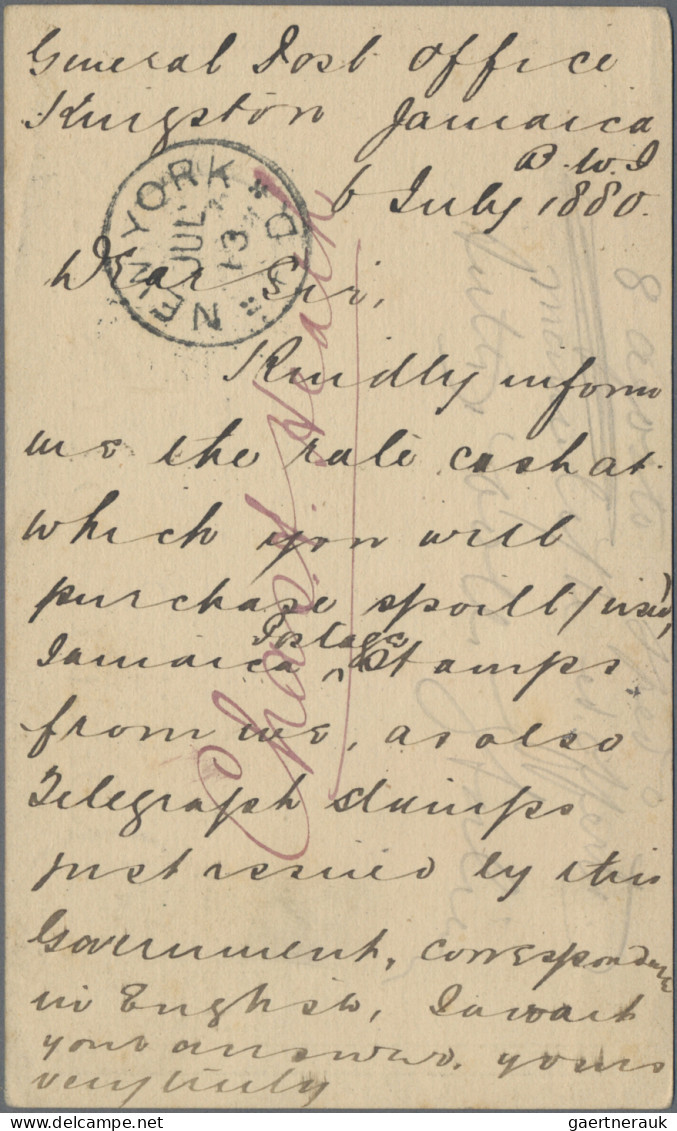 General Post Office
Kingston Jamaica
B.W.I
6 July 1880.
NEW YORK * D
JUL
13
Dear Sir,
Kindly inform
me the rate cash at
which you will
purchase spoilt/used,
Postage
Jamaica ^ Stamps
from me, as also
Telegraph stamps
just issued by this
Government, correspondence
in English, I await
your answer. yours
very truly
Chas. J.
8
gaertnerauk